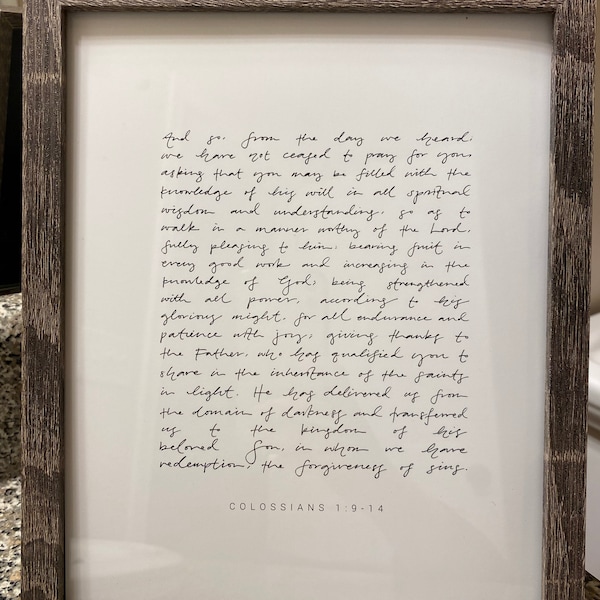 And so, from the day we heard,
we have not ceased to pray for you,
asking that you may be filled with the
knowledge of his will in all spiritual
wisdom and understanding, so as to
walk in a manner worthy of the Lord,
fully pleasing to him, bearing fruit in
every good work and increasing in the
knowledge of God, being strengthened
with all power, according to his
glorious might, for all endurance and
patience with joy, giving thanks to
the Father, who has qualified you to
share in the inheritance of the saints
in light. He has delivered us from
the domain of darkness and transferred
us to the kingdom of his
beloved Son, in whom we have
redemption, the forgiveness of sins.
COLOSSIANS 1:9-14